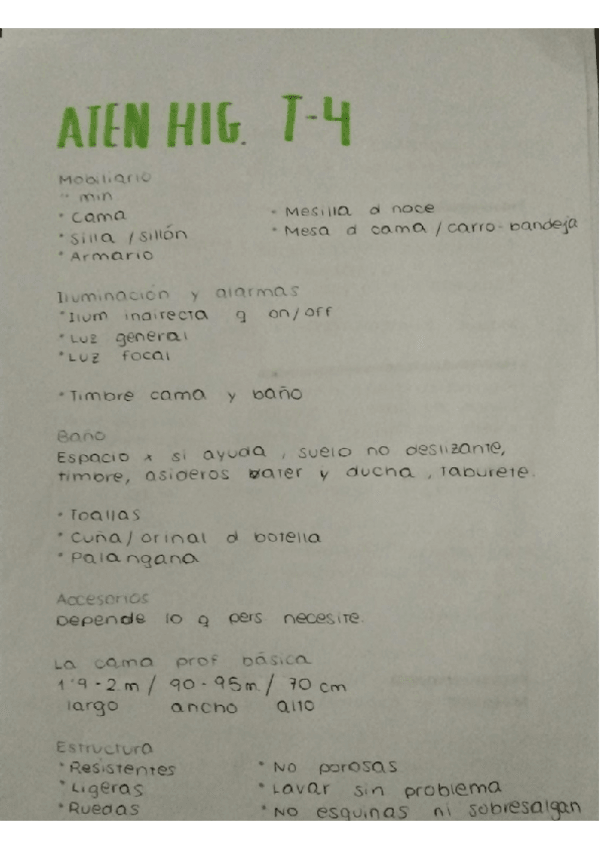 ATEN HIG. T-4
Mobiliario
- min
• Cama
• Silla / sillón
• Armario
• Mesilla d noce
• Mesa d cama / carro-bandeja
Iluminación y alarmas
• Ilum indirecta q on/off
• Luz general
• Luz focal
• Timbre cama y baño
Baño
Espacio x si ayuda, suelo no deslizante,
timbre, asideros water y ducha, taburete.
• Toallas
• Cuña/orinal d botella
• Palangana
Accesorios
Depende lo q pers necesite.
La cama prof básica
1'9-2 m / 90-95 m / 70 cm
largo ancho alto
Estructura
• Resistentes
• Ligeras
• Ruedas
• No porosas
• Lavar sin problema
• No esquinas ni sobresalgan